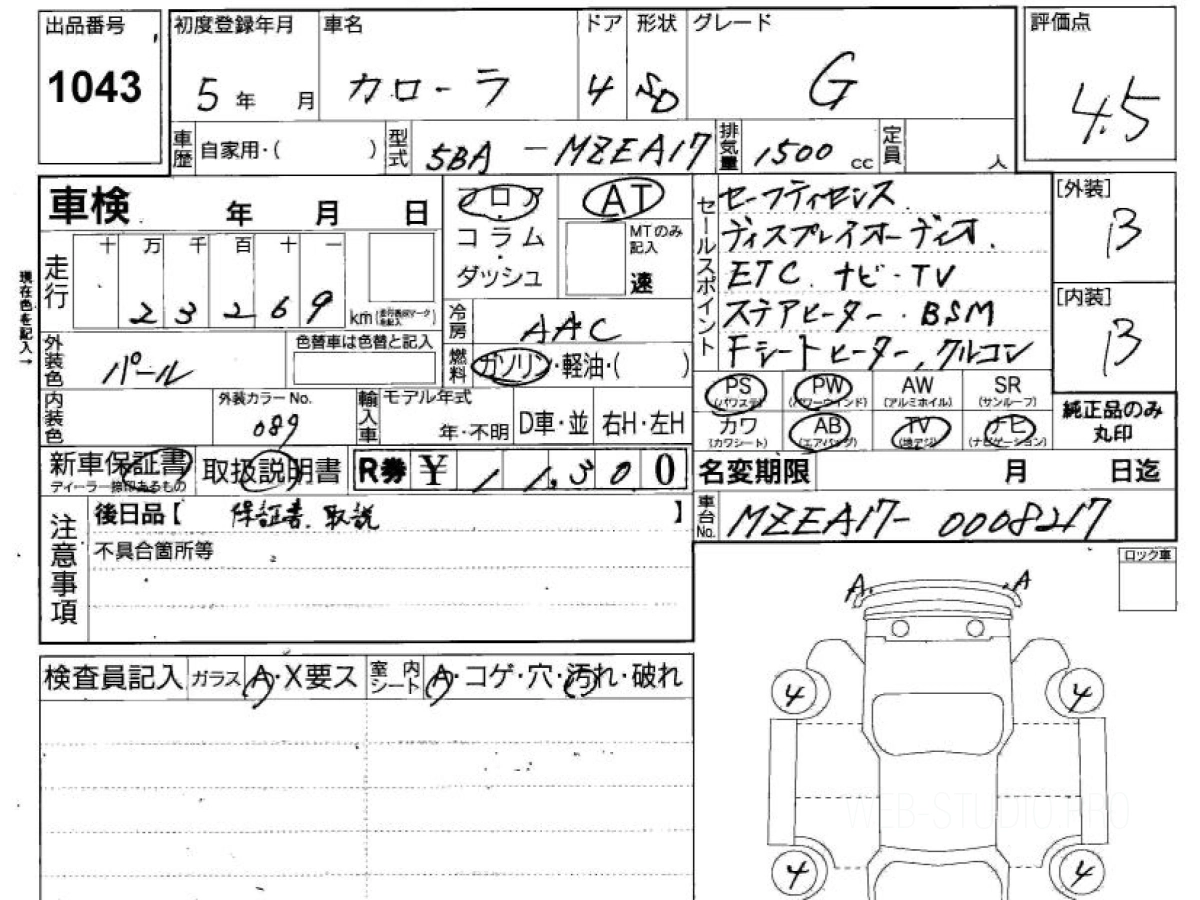 出品番号 初度登録年月 車名 ドア 形状 グレード 評価点
1043 5年 月 カローラ 4 SD G 4.5
車歴 自家用・( ) 型式 5BA - MZEA17 排気量 1500 cc 定員 人
車検 年 月 日 フロア・コラム・ダッシュ AT セールスポイント セーフティセンス. [外装]
B
走行 十 万 千 百 十 一 MTのみ記入 ディスプレイオーディオ.
速 ETC. ナビ・TV
現在色を記入→ 2 3 2 6 9 km ステアヒーター・BSM [内装]
冷房 AAC B
外装色 パール 色替車は色替と記入 燃料 ガソリン・軽油・( ) Fシートヒーター, クルコン
PS (パワステ) PW (パワーウインド) AW (アルミホイル) SR (サンルーフ)
内装色 外装カラーNo. 089 輸入車 モデル年式 年・不明 D車・並 右H・左H カワ (カワシート) AB (エアバッグ) TV (地デジ) ナビ (ナビゲーション) 純正品のみ丸印
新車保証書 ディーラー捺印あるもの 取扱説明書 R券 ¥ 1 1,3 0 0 名変期限 月 日迄
注意事項 後日品【 保証書. 取説 】 車台No. MZEA17- 0008217
不具合箇所等 ロック車
A A
検査員記入 ガラス A・X要ス 室内シート A・コゲ・穴・汚れ・破れ
4 4
WEB-STUDIO.PRO
4 4